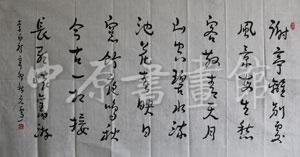 謝亭離別處
風景每生愁
客散青天月
山空碧水流
池花春映日
窓竹夜鳴秋
今古一相接
長歌懷舊游
中原書畫館